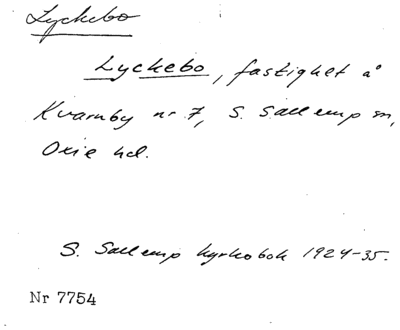 Lyckebo
Lyckebo, fastighet å
Kvarnby nr 7, S. Sallerup sn,
Oxie hd.
S. Sallerup kyrkobok 1924-35.
Nr 7754